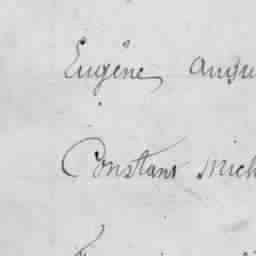 Eugène Augu
Constans Mich